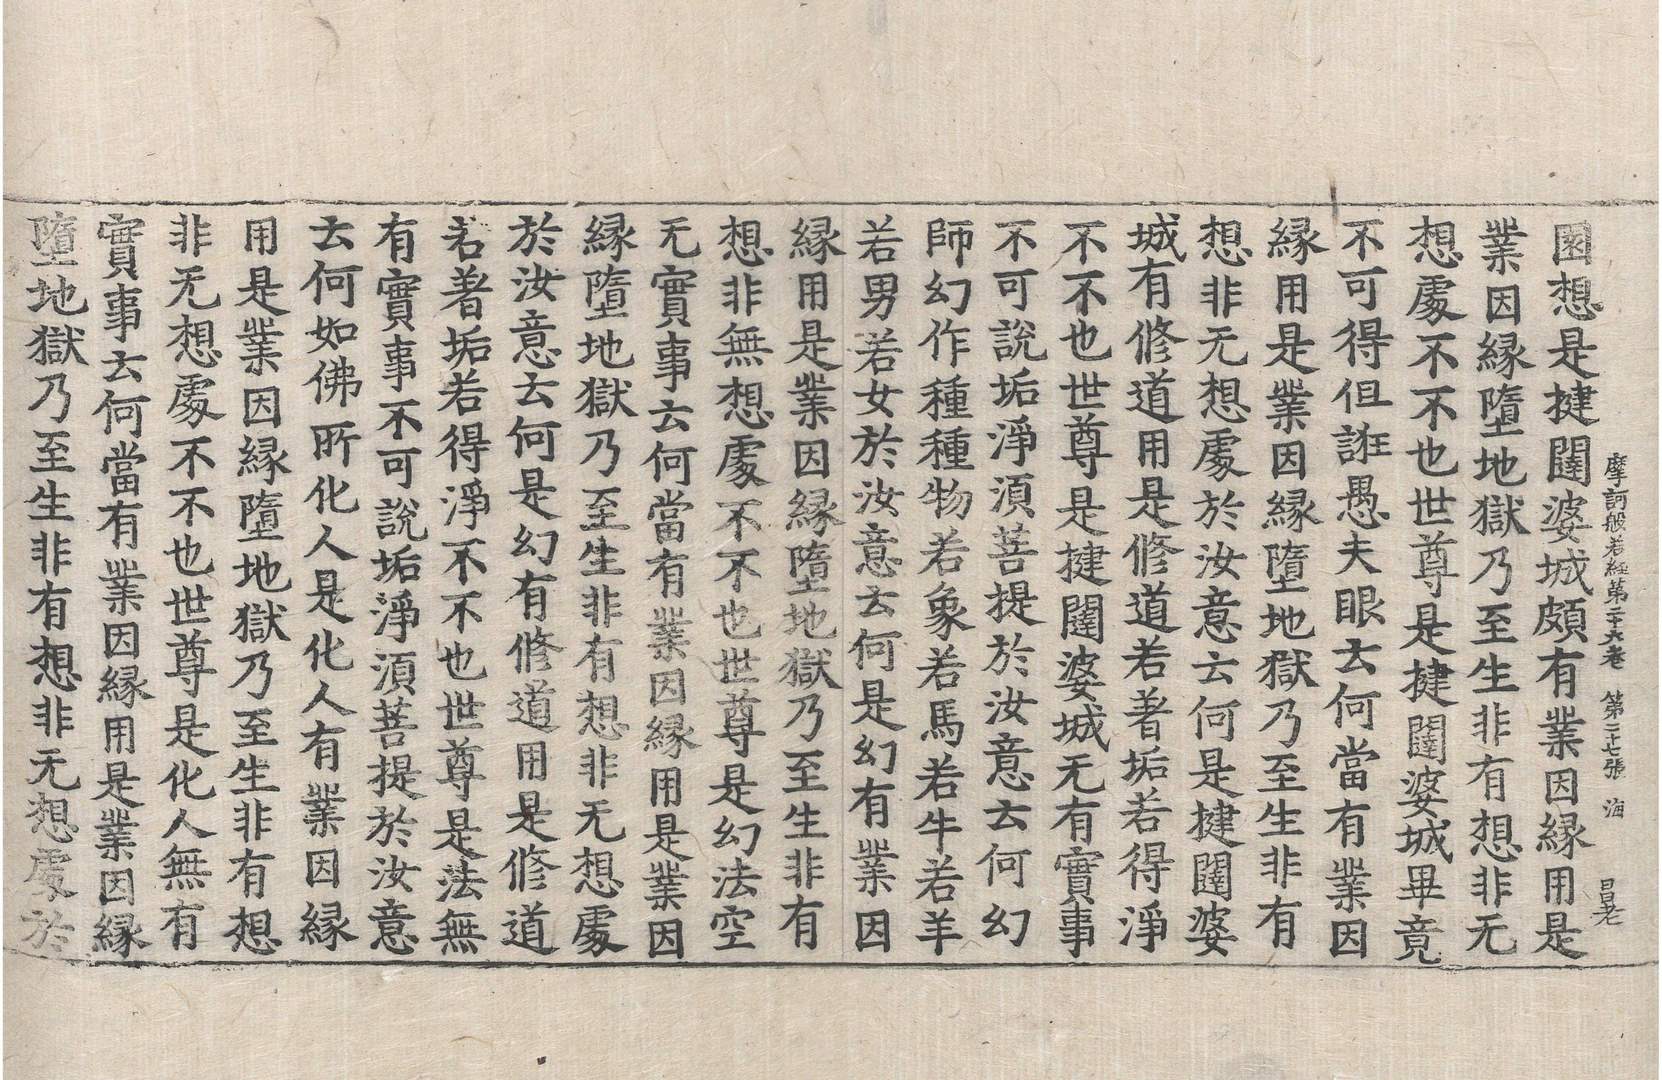 摩訶般若經第二十六卷 第二十七張 海
園想是揵闥婆城頗有業因緣用是
業因緣墮地獄乃至生非有想非无
想處不不也世尊是揵闥婆城畢竟
不可得但誑愚夫眼云何當有業因
緣用是業因緣墮地獄乃至生非有
想非无想處於汝意云何是揵闥婆
城有修道用是修道若著垢若得淨
不不也世尊是揵闥婆城无有實事
不可說垢淨湏菩提於汝意云何幻
師幻作種種物若象若馬若牛若羊
若男若女於汝意云何是幻有業因
緣用是業因緣墮地獄乃至生非有
想非無想處不不也世尊是幻法空
无實事云何當有業因緣用是業因
緣墮地獄乃至生非有想非无想處
於汝意云何是幻有修道用是修道
若著垢若得淨不不也世尊是法無
有實事不可說垢淨湏菩提於汝意
云何如佛所化人是化人有業因緣
用是業因緣墮地獄乃至生非有想
非无想處不不也世尊是化人無有
實事云何當有業因緣用是業因緣
墮地獄乃至生非有想非无想處於